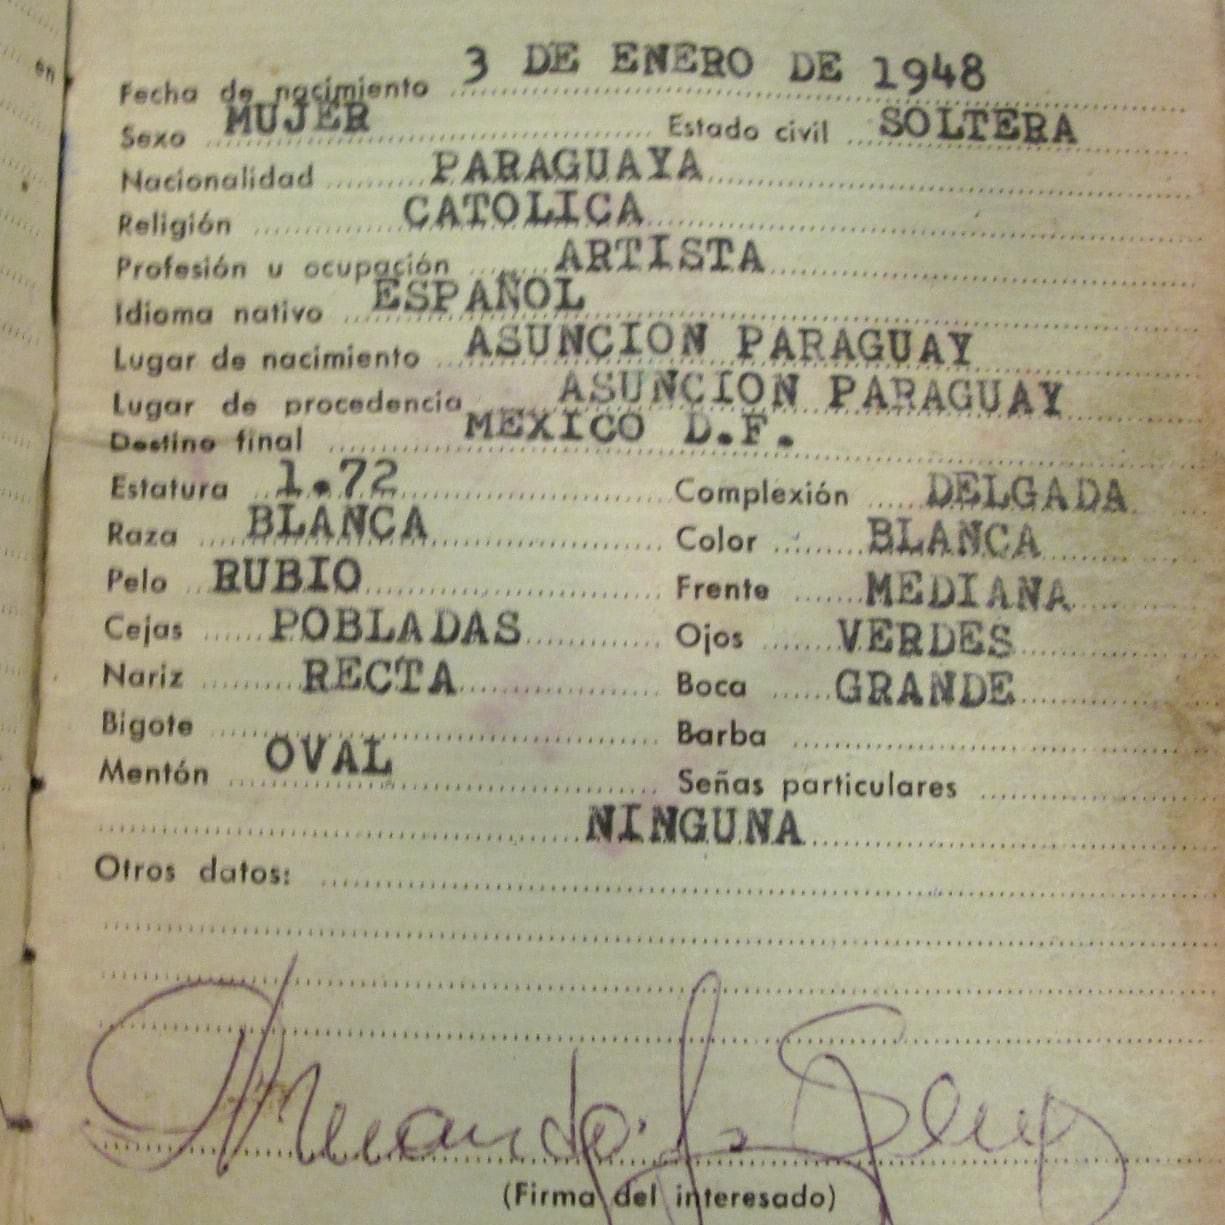 en
Fecha de nacimiento 3 DE ENERO DE 1948
Sexo MUJER Estado civil SOLTERA
Nacionalidad PARAGUAYA
Religión CATOLICA
Profesión u ocupación ARTISTA
Idioma nativo ESPAÑOL
Lugar de nacimiento ASUNCION PARAGUAY
Lugar de procedencia ASUNCION PARAGUAY
Destino final MEXICO D.F.
Estatura 1.72 Complexión DELGADA
Raza BLANCA Color BLANCA
Pelo RUBIO Frente MEDIANA
Cejas POBLADAS Ojos VERDES
Nariz RECTA Boca GRANDE
Bigote Barba
Mentón OVAL Señas particulares
NINGUNA
Otros datos:
(Firma del interesado)